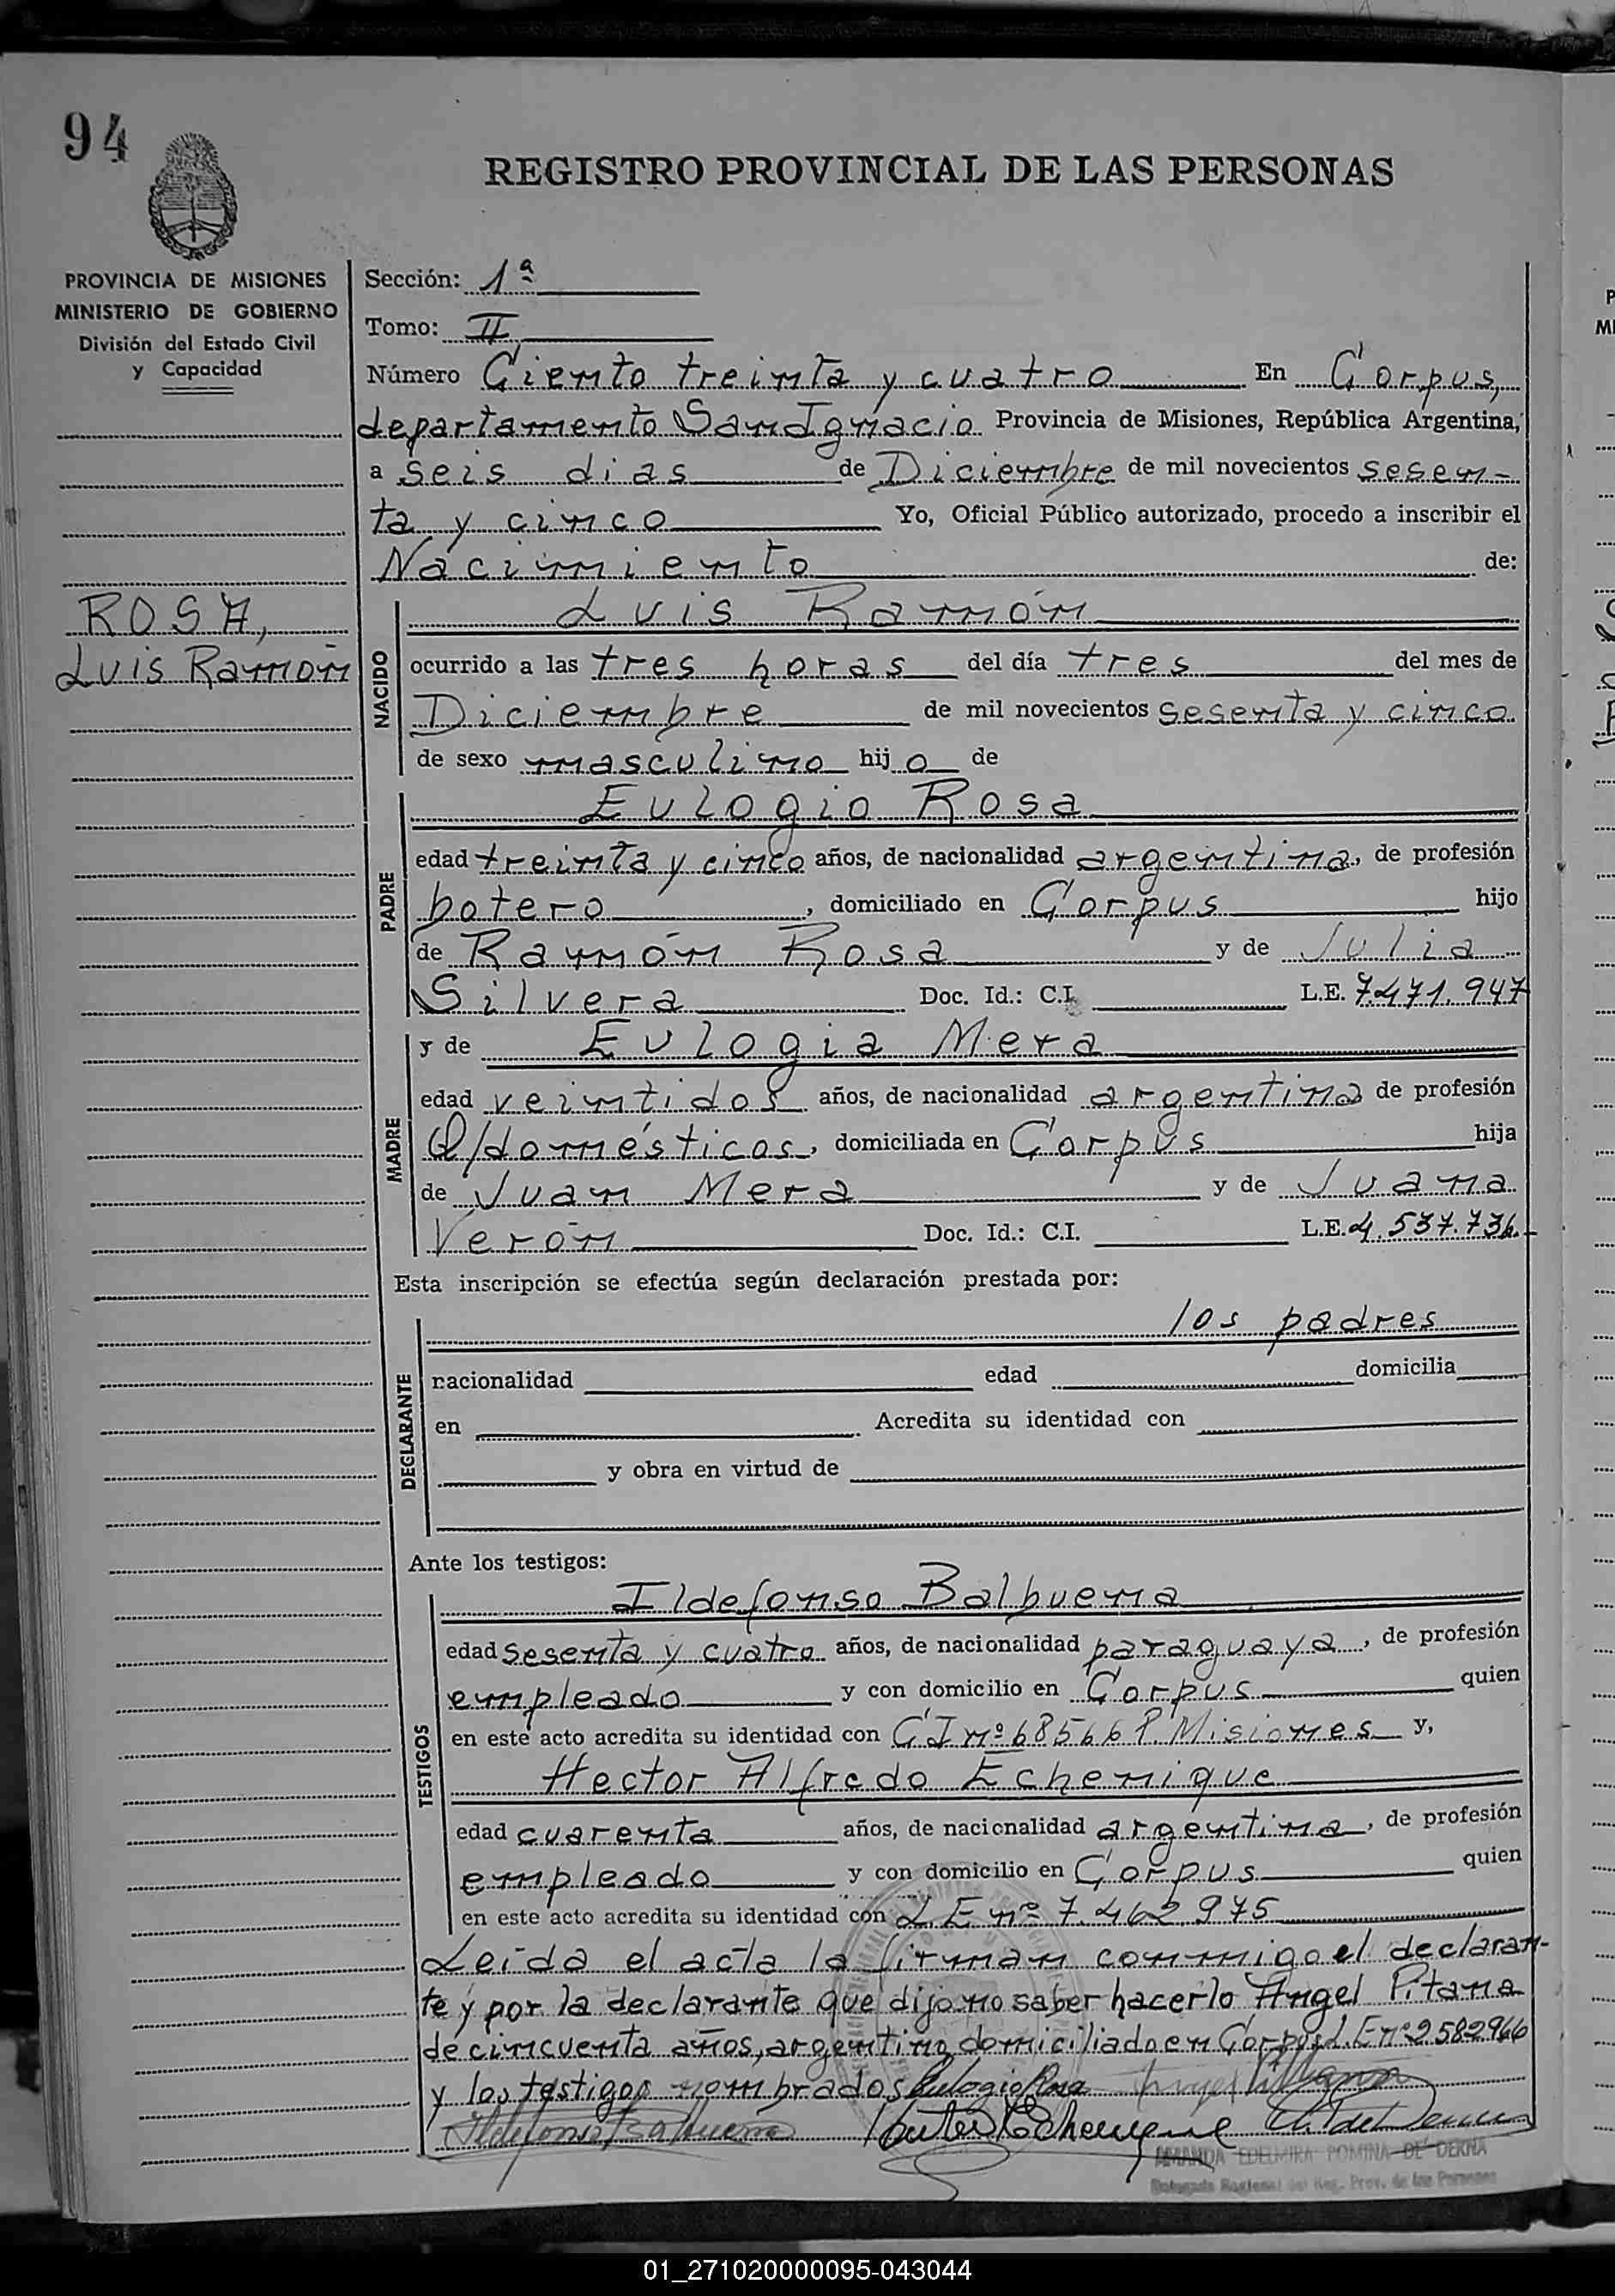 94
REGISTRO PROVINCIAL DE LAS PERSONAS
PROVINCIA DE MISIONES
MINISTERIO DE GOBIERNO
División del Estado Civil
y Capacidad
ROSA,
Luis Ramón
Sección: 1ª
Tomo: II
Número Ciento treinta y cuatro En Corpus,
departamento San Ignacio Provincia de Misiones, República Argentina,
a seis dias de Diciembre de mil novecientos sesen-
ta y cinco Yo, Oficial Público autorizado, procedo a inscribir el
Nacimiento de:
NACIDO
Luis Ramón
ocurrido a las tres horas del día tres del mes de
Diciembre de mil novecientos sesenta y cinco
de sexo masculino hijo de
PADRE
Eulogio Rosa
edad treinta y cinco años, de nacionalidad argentina, de profesión
botero, domiciliado en Corpus hijo
de Ramón Rosa y de Julia
Silvera Doc. Id.: C.I. L.E. 7.471.947
MADRE
y de Eulogia Mera
edad veintidos años, de nacionalidad argentina de profesión
Q/domésticos, domiciliada en Corpus hija
de Juan Mera y de Juana
Verón Doc. Id.: C.I. L.E. 4.537.736.
Esta inscripción se efectúa según declaración prestada por:
DECLARANTE
los padres
nacionalidad edad domicilia
en Acredita su identidad con
y obra en virtud de
Ante los testigos:
TESTIGOS
Ildefonso Balbuena
edad sesenta y cuatro años, de nacionalidad paraguaya, de profesión
empleado y con domicilio en Corpus quien
en este acto acredita su identidad con CI nº 68566 P. Misiones y,
Hector Alfredo Echenique
edad cuarenta años, de nacionalidad argentina, de profesión
empleado y con domicilio en Corpus quien
en este acto acredita su identidad con L.E nº 7.462.975
Leida el acta la firman conmigo el declaran-
te y por la declarante que dijo no saber hacerlo Angel Pitana
de cincuenta años, argentino, domiciliado en Corpus L.E nº 2582966
y los testigos nombrados Eulogio Rosa
Ildefonso Balbuena Echenique
AMANDA EDELMIRA POMINA DE DERNA
Delegada Regional del Reg. Prov. de las Personas
01_271020000095-043044